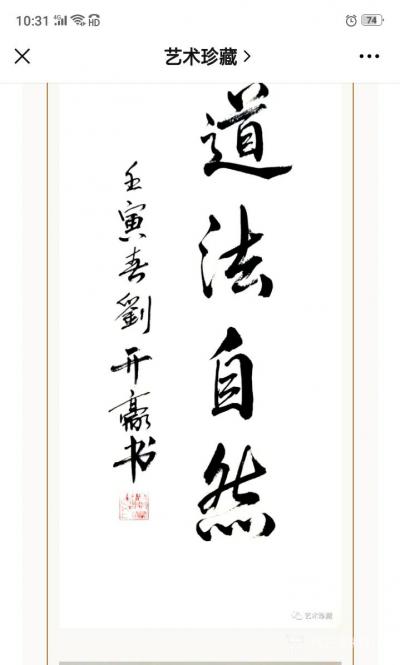 10:31
4G
HD
74
艺术珍藏
道法自然
壬寅春劉开豪书
艺术珍藏